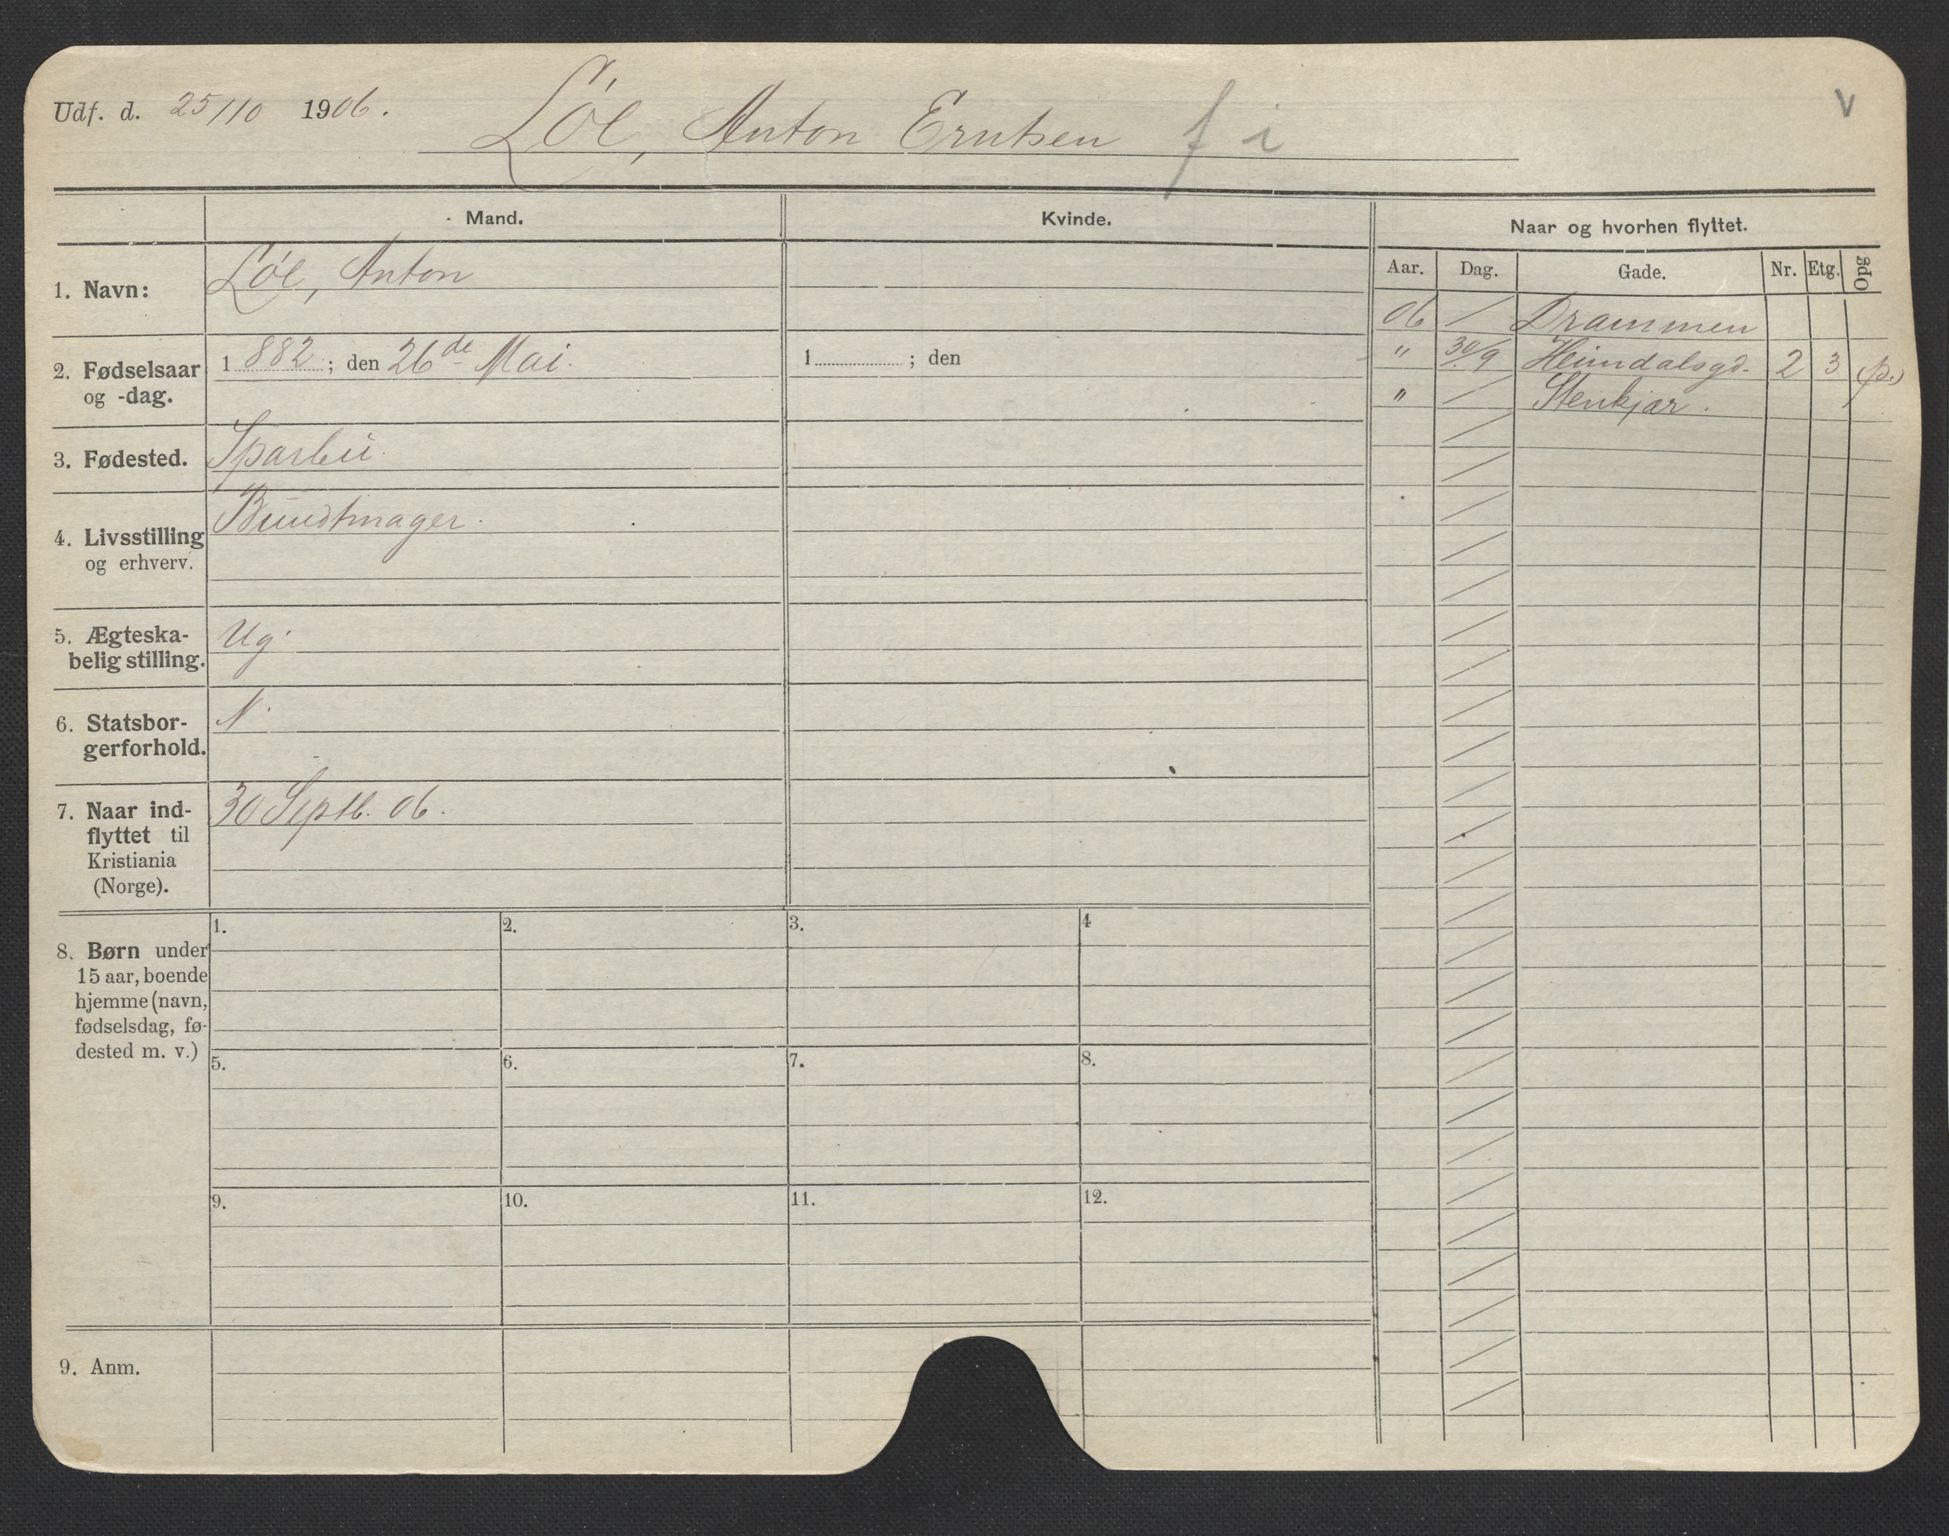 Udf. d. 25/10 1906.
Løe, Anton Erntsen f i
v
Mand.
Kvinde.
Naar og hvorhen flyttet.
Aar. Dag. Gade. Nr. Etg. Opg
1. Navn: Løe, Anton
06 / Drammen
2. Fødselsaar og -dag. 1 882 ; den 26de Mai.
1 ; den
" 30/9 Heimdalsgd. 2 3 (p.)
" / Stenkjær.
3. Fødested. Sparbu.
4. Livsstilling og erhverv. Bundtmager.
5. Ægteska-
belig stilling. Ug.
6. Statsbor-
gerforhold. N.
7. Naar ind-
flyttet til
Kristiania
(Norge). 30 Septb. 06.
8. Børn under
15 aar, boende
hjemme (navn,
fødselsdag, fø-
dested m. v.)
1. 2. 3. 4
5. 6. 7. 8.
9. 10. 11. 12.
9. Anm.